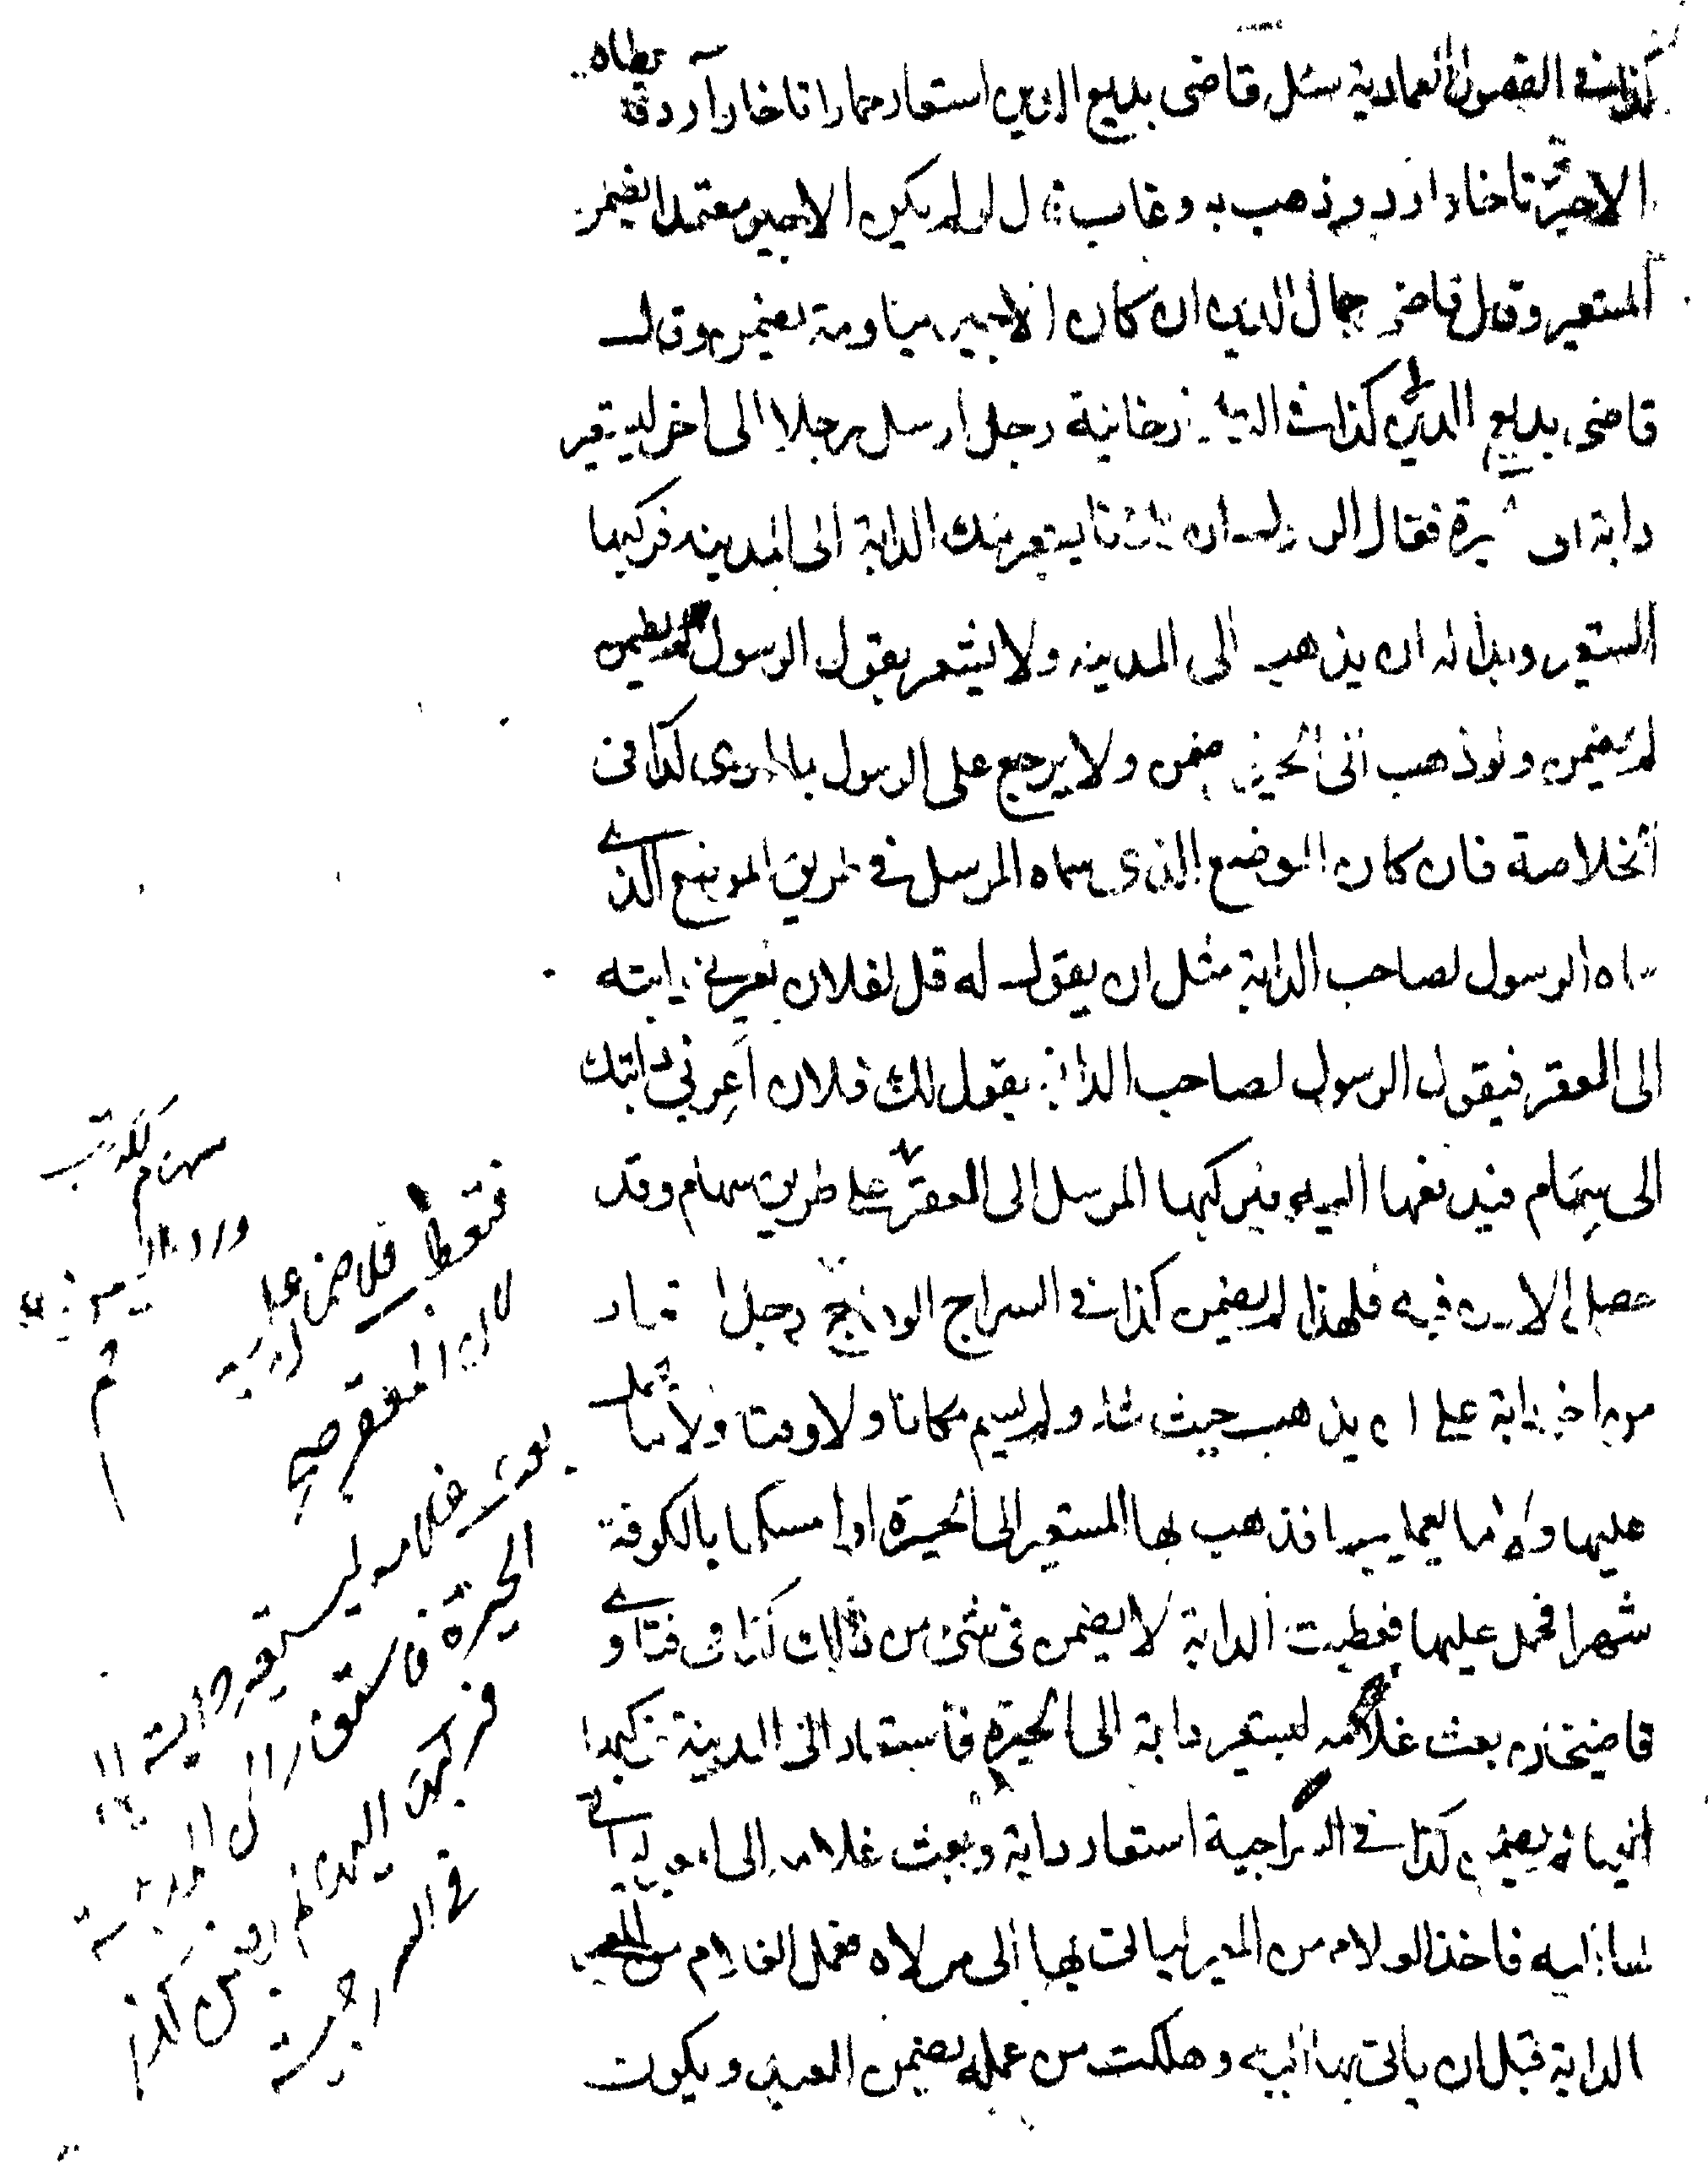 كذا في الفصول العمادية سئل قاضي بديع الدين استعار حمارا تا خار آرد
الاجير تا خار آرد وذهب به وغاب قال لو لم يكن الاجير معتمدا يضمن
المستعير وقال قاضي جمال الدين ان كان الاجير مياومة يضمن وقال
قاضي بديع الدين كذا في التتارخانية رجل ارسل رجلا الى اخر ليستعير
دابة الى الحيرة فقال الرسول ان فلانا يستعير منك الدابة الى المدينة فركبها
المستعير وبدا له ان يذهب الى المدينة ولا يشعر بقول الرسول
لم يضمن ولو ذهب الى الحيرة ضمن ولا يرجع على الرسول بما ادى كذا في
الخلاصة فان كان الموضع الذي سماه المرسل في طريق الموضع الذي
سماه الرسول لصاحب الدابة مثل ان يقول له قل لفلان يعيرني دابته
الى العقر فيقول الرسول لصاحب الدابة يقول لك فلان اعرني دابتك
الى سهام فيدفعها اليه فيركبها المرسل الى العقر على طريق سهام وقد
حصل الاذن فيه فلهذا لم يضمن كذا في السراج الوهاج رجل استعار
من اخر دابة على ان يذهب حيث شاء ولم يسم مكانا ولا وقتا ولا ما يحمل
عليها ولا ما يعمل بها فذهب بها المستعير الى الحيرة او امسكها بالكوفة
شهرا فحمل عليها فعطبت الدابة لا يضمن في شئ من ذلك كذا في فتاوى
قاضيخان بعث غلامه ليستعير دابة الى الحيرة فاستعار الى المدينة فركبها
اليها لم يضمن كذا في السراجية استعار دابة وبعث غلامه الى المعير
ليأتي بها اليه فاخذ الغلام من المعير ليأتي بها الى مولاه فعمل الغلام
الدابة قبل ان يأتي بها اليه وهلكت من عمله يضمن العبد ويكون
فتعطب فلا ضمان عليه
لان العقر
بعث غلامه ليستعير دابة الى
الحيرة فاستعار الى المدينة
فركبها اليها لم يضمن كذا
في السراجية